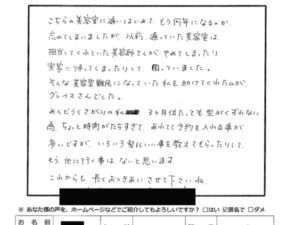 こちらの美容室に通いはじめて、もう何年になるのか
忘れてしまいましたが、以前、通っていた美容室は
担当してくれていた美容師さんが やめてしまったり
実家に帰ってしまったりして 困っていました。
そんな美容室難民になっていた私を助けてくれたのが
グレースさんでした。
めんどうくさがりの私 3ヶ月位たっても型がくずれない
為、ちょっと時間がたちすぎて あわてて予約を入れる事が
多いですが、いろいろ髪にいい事を教えてもらったりして
もう 他に行く事は ないと思います
これからも 長くおつきあい させて下さいね
※ あなた様の声を、ホームページなどでご紹介してもよろしいですか? □はい 記匿名で □ダメ
お名前